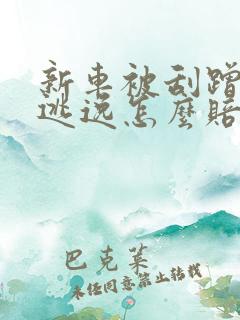 新車被刮蹭
逃逸怎麼賠
巴克萊
未經同意禁止轉載